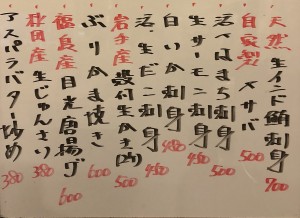 天然 生インド鮪刺身 700
自家製 〆サバ 500
活〆はまち刺身 500
生サーモン刺身 480
白いか刺身 480
活〆生だこ刺身 480
岩手産 殻付生かき(2ヶ) 500
ぶりかま焼き 600
福島産 目光唐揚げ 600
秋田産 生じゅんさい 380
アスパラバター炒め 380